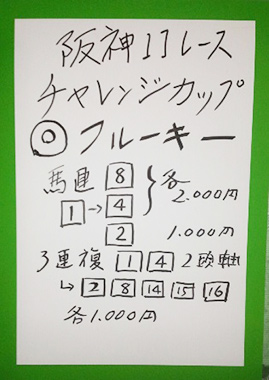 阪神11レース
チャレンジカップ
◎フルーキー
馬連 8
1→4 } 各2.000円
2 1.000円
3連複 1 4 2頭軸
↳ 2 8 14 15 16
各1.000円